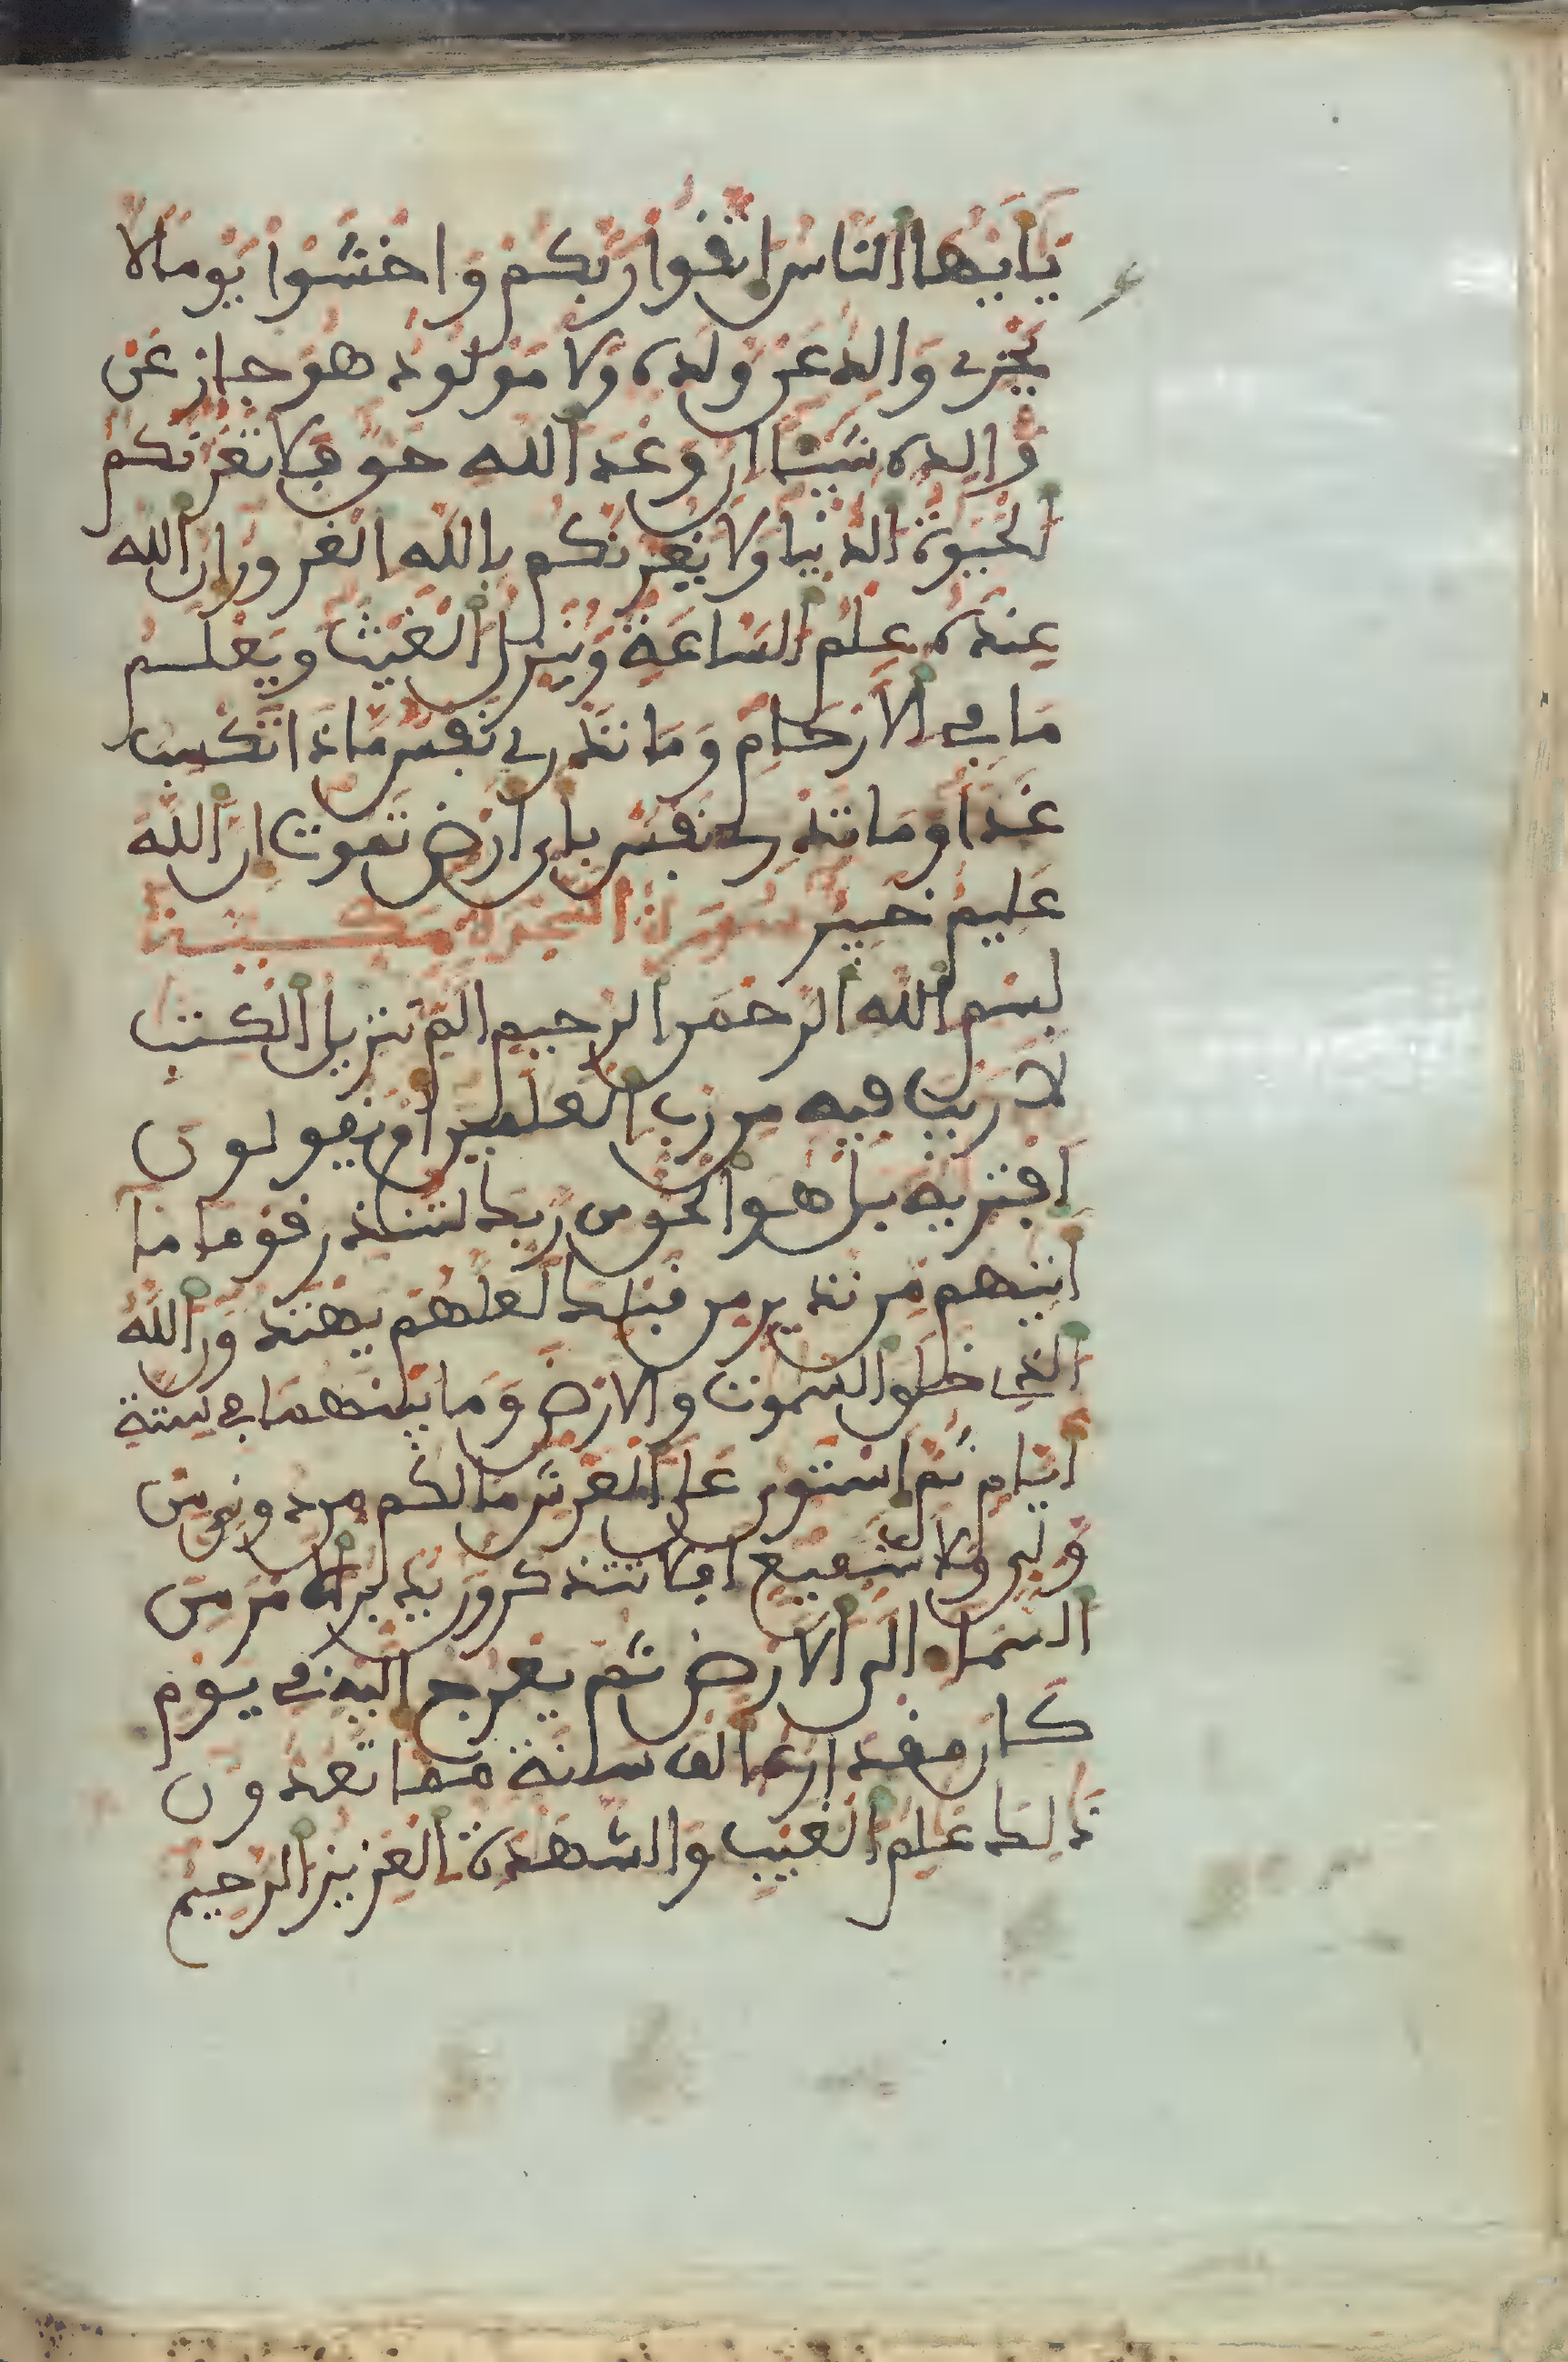 يَٰأَيُّهَا النَّاسُ اتَّقُوا رَبَّكُمْ وَاخْشَوْا يَوْمًا لَّا
يَجْزِي وَالِدٌ عَن وَلَدِهِ وَلَا مَوْلُودٌ هُوَ جَازٍ عَن
وَالِدِهِ شَيْـًٔا إِنَّ وَعْدَ اللَّهِ حَقٌّ فَلَا تَغُرَّنَّكُمُ
الْحَيَوٰةُ الدُّنْيَا وَلَا يَغُرَّنَّكُم بِاللَّهِ الْغَرُورُ إِنَّ اللَّهَ
عِندَهُ عِلْمُ السَّاعَةِ وَيُنَزِّلُ الْغَيْثَ وَيَعْلَمُ
مَا فِي الْأَرْحَامِ وَمَا تَدْرِي نَفْسٌ مَّاذَا تَكْسِبُ
غَدًا وَمَا تَدْرِي نَفْسٌ بِأَيِّ أَرْضٍ تَمُوتُ إِنَّ اللَّهَ
عَلِيمٌ خَبِيرٌ سُورَةُ السَّجْدَةِ مَكِّيَّة
بِسْمِ اللَّهِ الرَّحْمَٰنِ الرَّحِيمِ الم تَنزِيلُ الْكِتَٰبِ
لَا رَيْبَ فِيهِ مِن رَّبِّ الْعَٰلَمِينَ أَمْ يَقُولُونَ
افْتَرَىٰهُ بَلْ هُوَ الْحَقُّ مِن رَّبِّكَ لِتُنذِرَ قَوْمًا مَّا
أَتَىٰهُم مِّن نَّذِيرٍ مِّن قَبْلِكَ لَعَلَّهُمْ يَهْتَدُونَ اللَّهُ
الَّذِي خَلَقَ السَّمَٰوَٰتِ وَالْأَرْضَ وَمَا بَيْنَهُمَا فِي سِتَّةِ
أَيَّامٍ ثُمَّ اسْتَوَىٰ عَلَى الْعَرْشِ مَا لَكُم مِّن دُونِهِ مِن
وَلِيٍّ وَلَا شَفِيعٍ أَفَلَا تَتَذَكَّرُونَ يُدَبِّرُ الْأَمْرَ مِنَ
السَّمَاءِ إِلَى الْأَرْضِ ثُمَّ يَعْرُجُ إِلَيْهِ فِي يَوْمٍ
كَانَ مِقْدَارُهُ أَلْفَ سَنَةٍ مِّمَّا تَعُدُّونَ
ذَٰلِكَ عَٰلِمُ الْغَيْبِ وَالشَّهَٰدَةِ الْعَزِيزُ الرَّحِيمُ